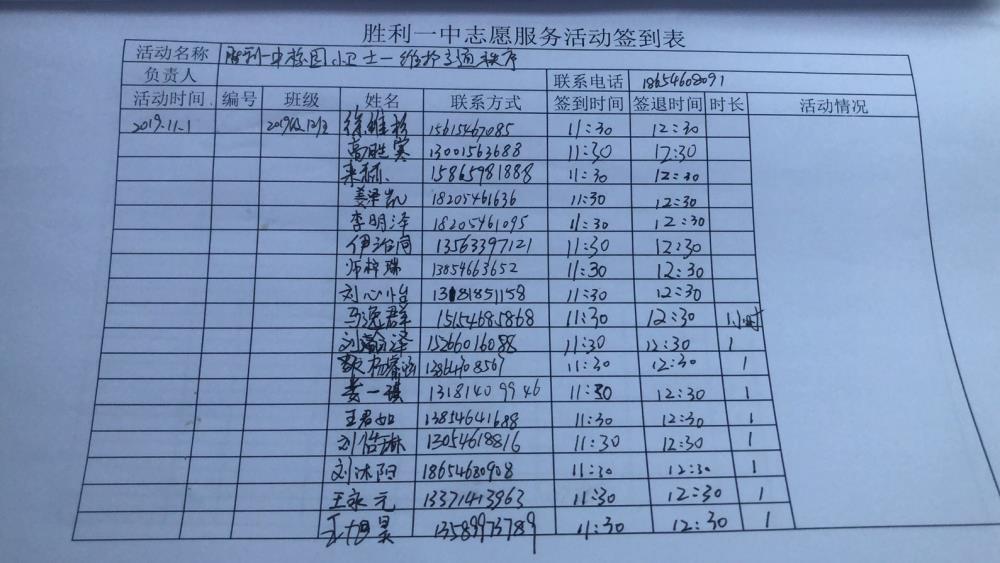 胜利一中志愿服务活动签到表
活动名称 胜利一中校园小卫士一维护交通秩序
负责人 联系电话 18654608091
活动时间 编号 班级 姓名 联系方式 签到时间 签退时间 时长 活动情况
2019.11.1 徐维杉 15615467085 11:30 12:30
高胜寒 13001563688 11:30 12:30
来赫 15865981888 11:30 12:30
姜泽凯 18205461636 11:30 12:30
李明泽 18205461095 11:30 12:30
13563397121 11:30 12:30
师梓瑞 13854663652 11:30 12:30
刘心怡 13181851158 11:30 12:30
马逸群 15154685868 11:30 12:30 1小时
15266016088 11:30 12:30 1
11:30 12:30 1
娄一琪 13181409946 11:30 12:30 1
王君如 13854641688 11:30 12:30 1
刘倍琳 13054618816 11:30 12:30 1
刘沐阳 1865460908 11:30 12:30 1
王永元 13371413963 11:30 12:30 1
王旭昊 13589973789 11:30 12:30 1